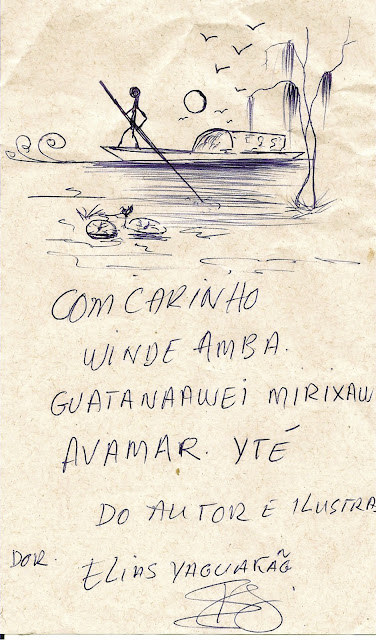 COM CARINHO
WINDE AMBA.
GUATANAAWEI MIRIXAW
AVAMAR. YTÉ
DO AUTOR E ILUSTRA
DOR. ELIAS YAGUAKÃG